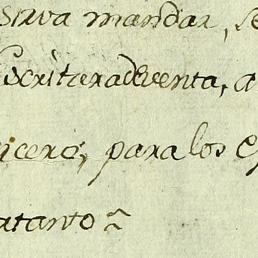 sirva mandar, se
Escritura de venta, a
icero, para los ef
rtanto